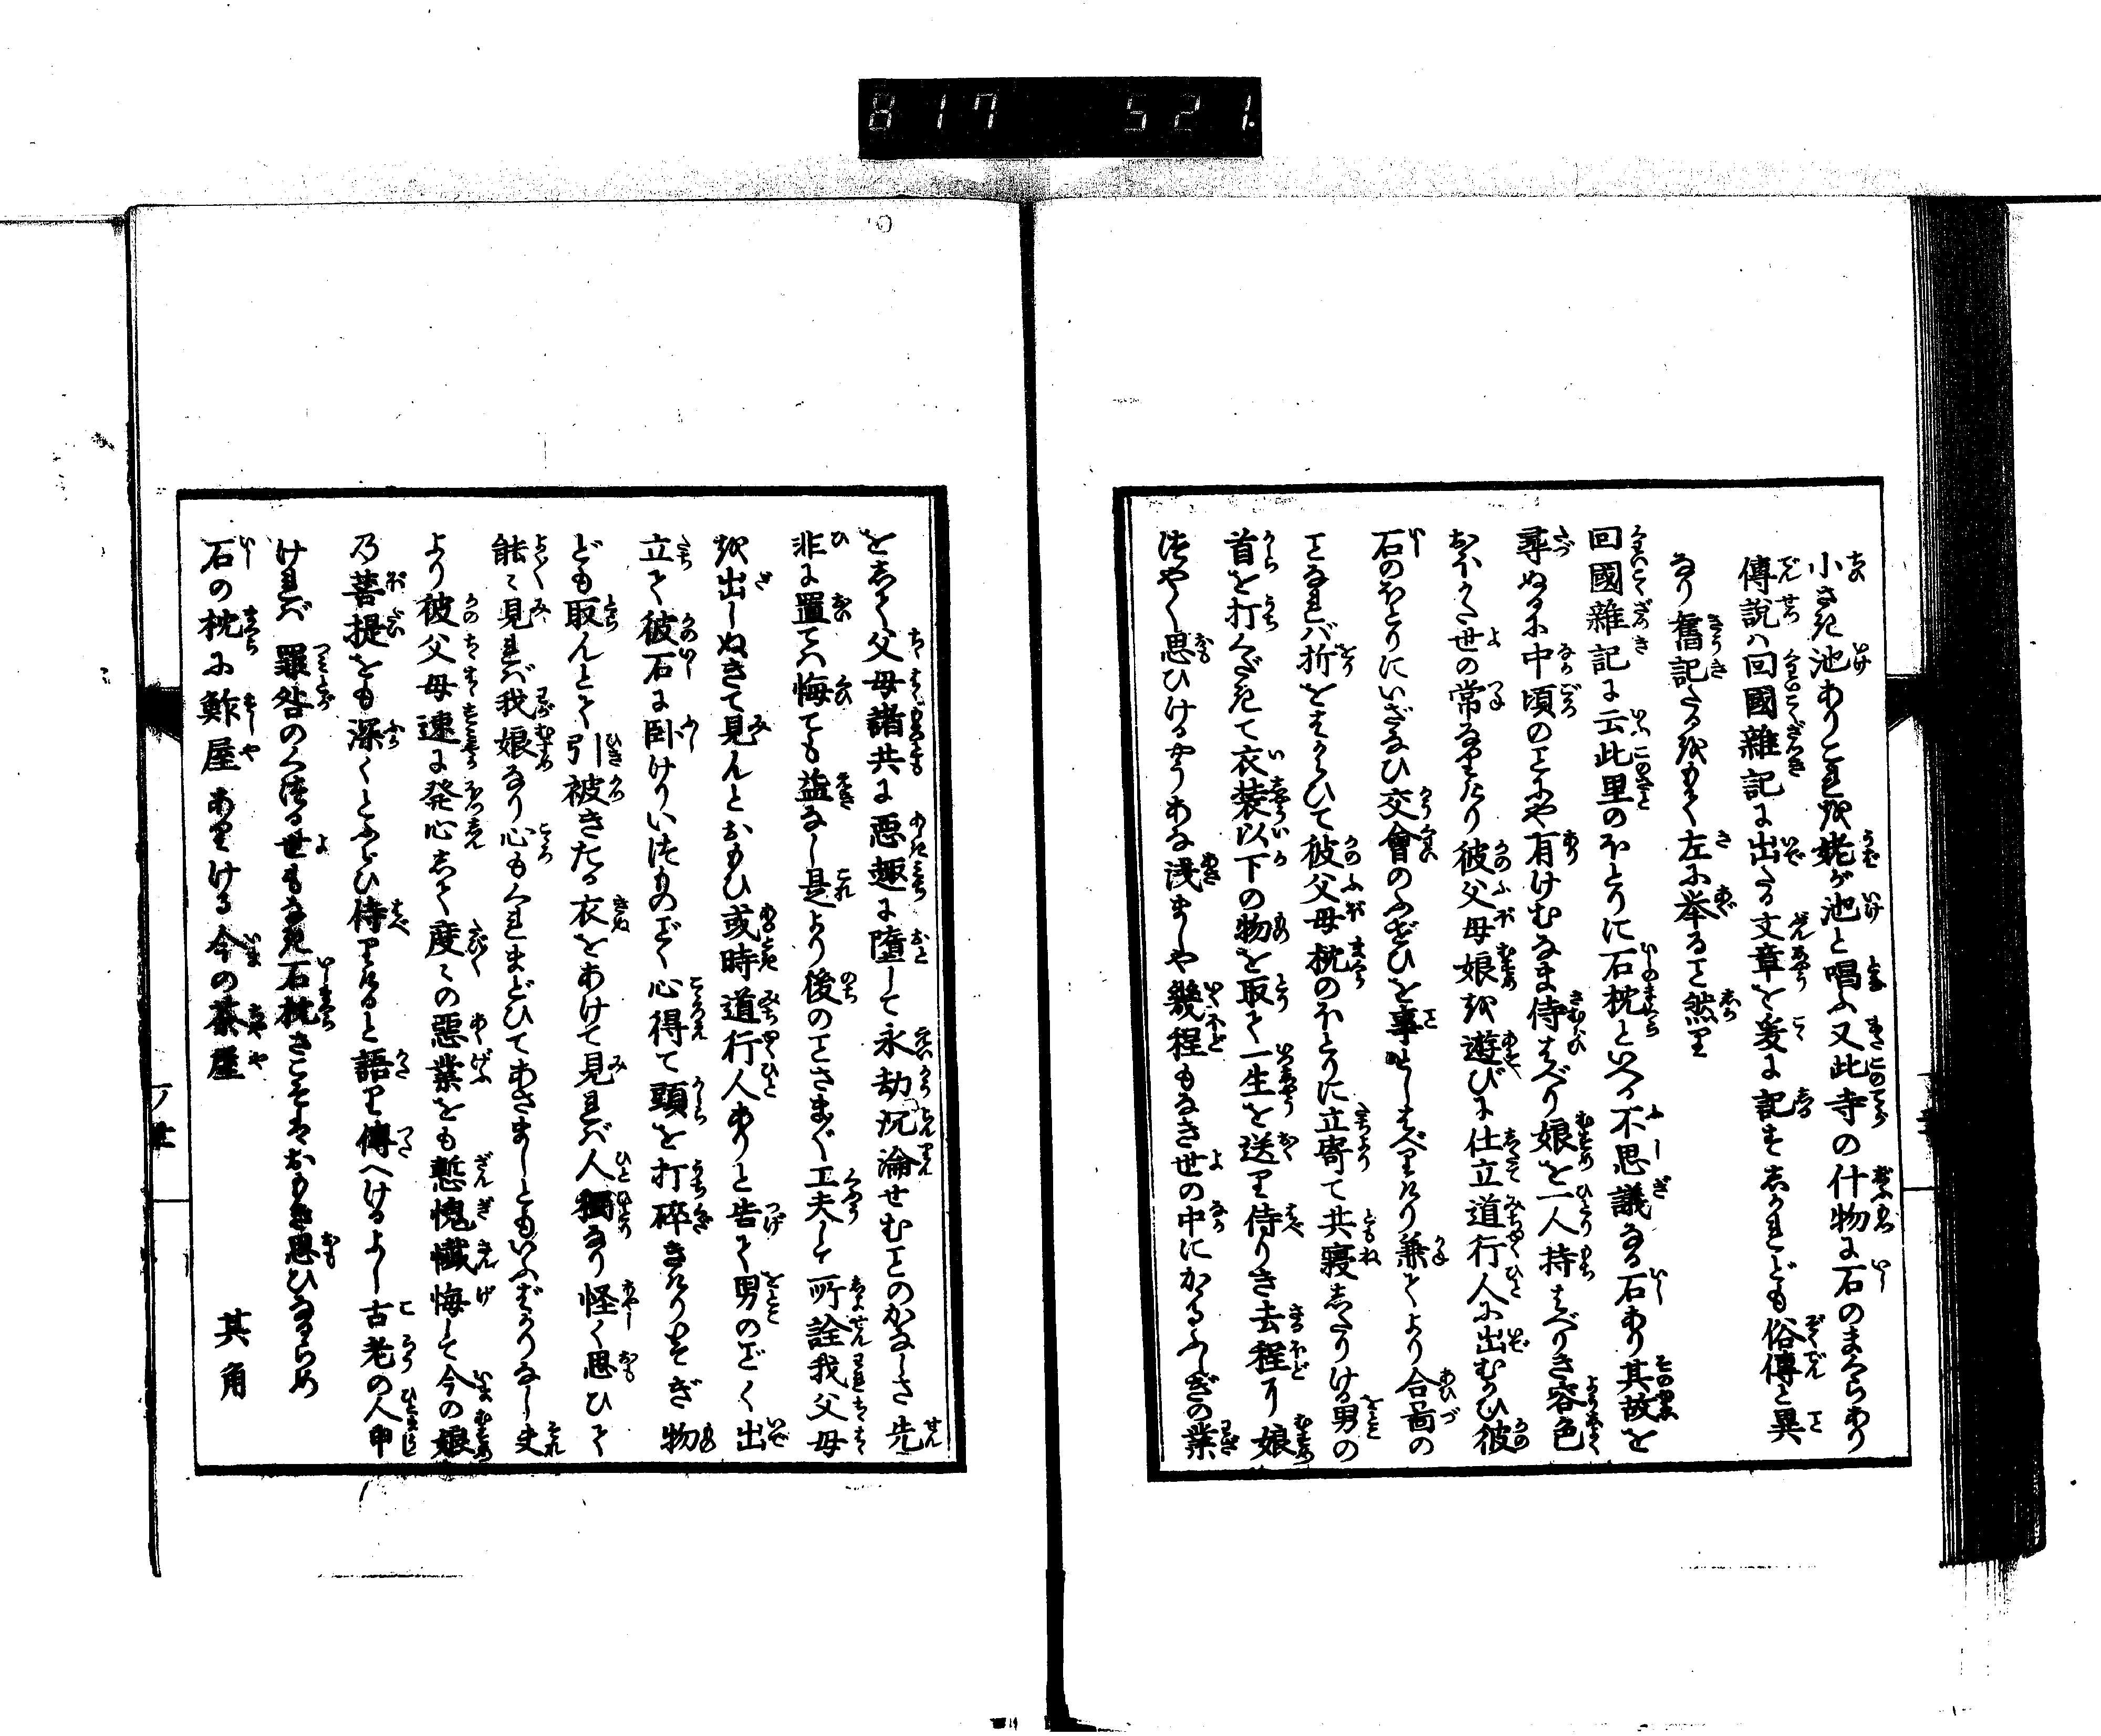 817 521.
小さき池ありこれを姥が池と唱ふ又此寺の什物に石のまくらあり
傳說は回國雜記に出たる文章を爰に記すしかれども俗傳と異
なり舊記たるをもて左に挙ること然り
回國雜記に云此里のほとりに石枕といへる不思議なる石あり其故を
尋ぬるに中頃のことにや有けむなま侍はべり娘を一人持はべりき容色
おほかた世の常なりけり彼父母娘を遊びに仕立道行人に出むかひ彼
石のほとりにいざなひ交會のふぜひを事としはべりけり兼てより合図の
ことなれバ折をはからひて彼父母枕のほとりに立寄て共寢したりける男の
首を打くだきて衣装以下の物を取て一生を送り侍りき去程に娘
つやつや思ひけるやうあな淺ましや幾程もなき世の中にかるふしぎの業
をして父母諸共に悪趣に墮して永劫沉淪せむことのかなしさ先
非に置ては悔ても益なし是より後のことさまざま工夫して所詮我父母
を出しぬきて見んとおもひ或時道行人ありと告て男のごとく出
立て彼石に臥けりいつものごとく心得て頭を打碎きけりいそぎ物
ども取んとて引被きたる衣をあけて見れバ人獨なり怪く思ひて
能々見れバ我娘なり心もくれまどひてあさましともいふばかりなし夫
より彼父母速に発心して度々の悪業をも慙愧懺悔して今の娘
乃菩提をも深くとふらひ侍りけると語り傳へけるよし古老の人申
けれバ 罪咎のくつる世もなき石枕さこそはおもき思ひなるらめ
石の枕に鮓屋ありける今の茶屋 其角